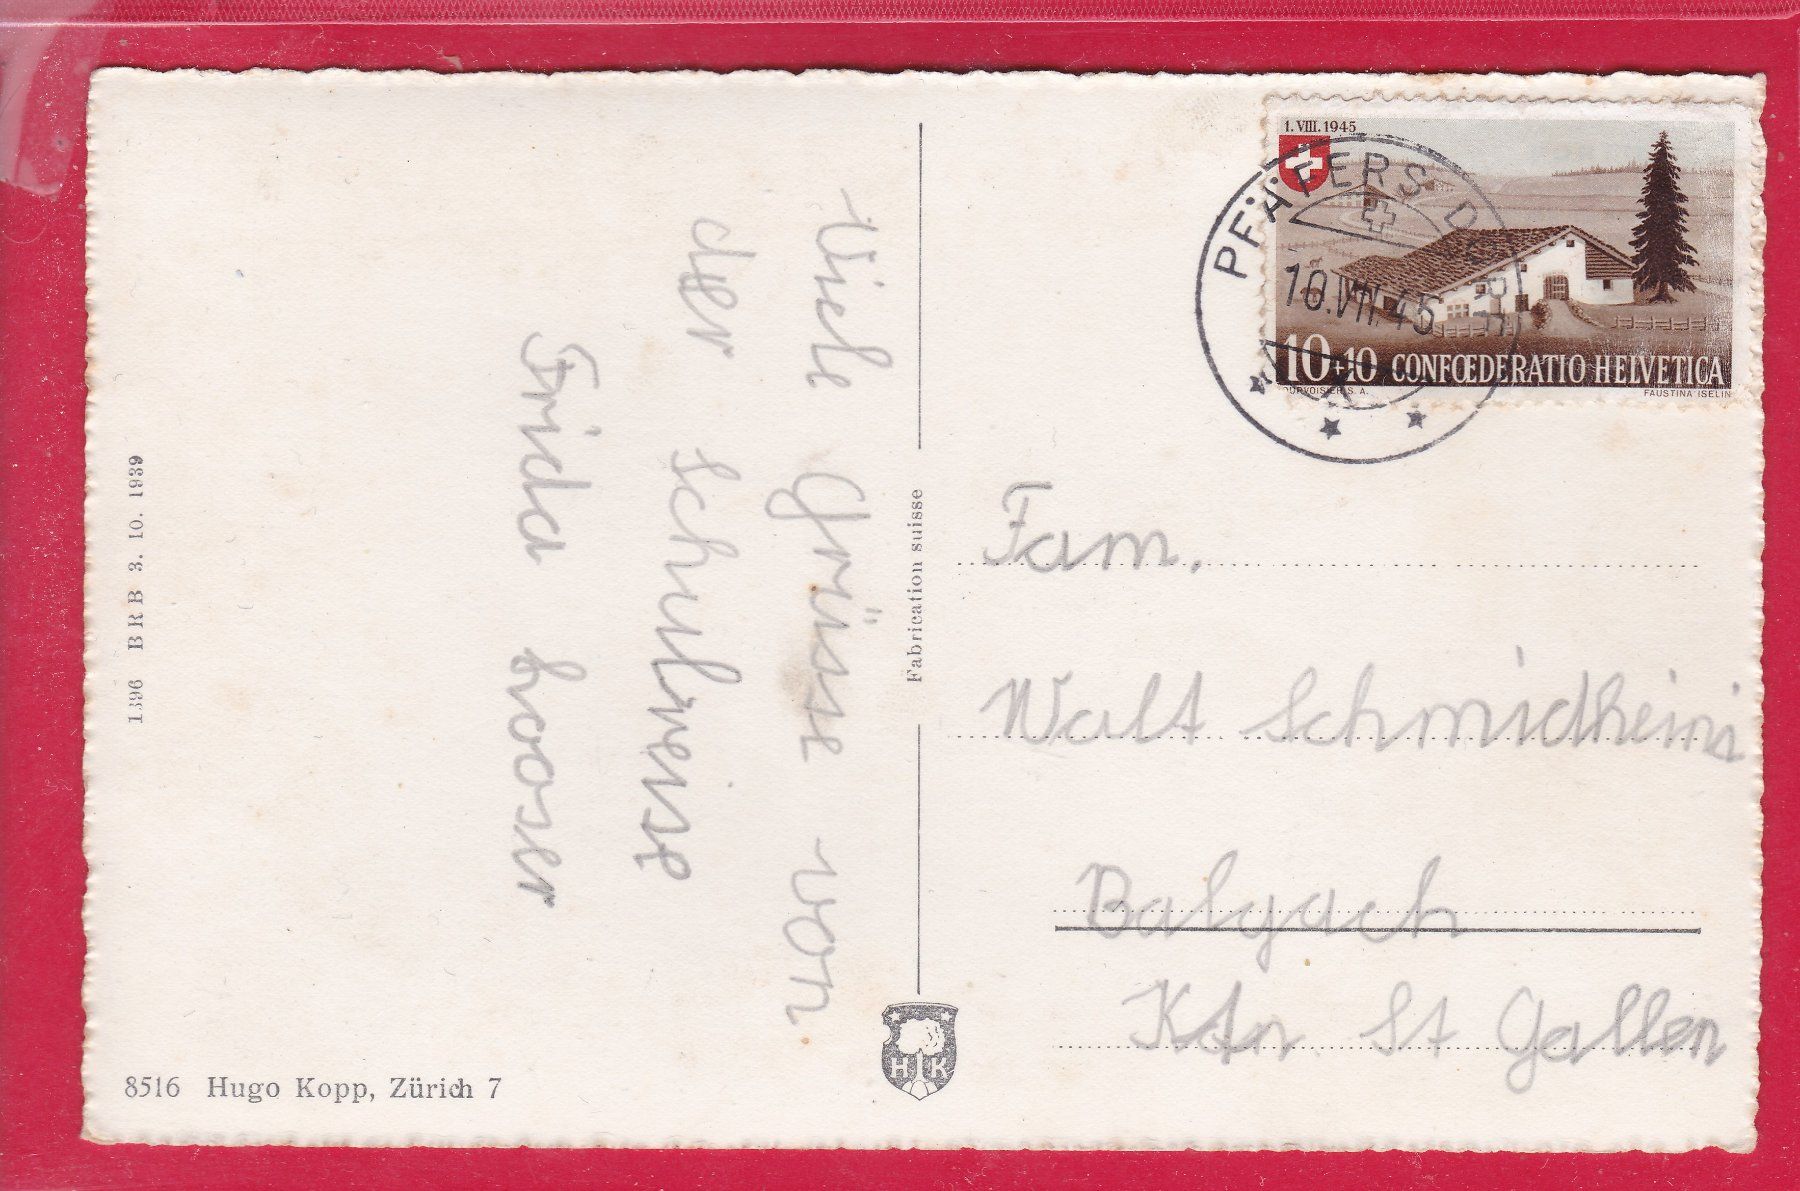 Viele Grüsse von
der Schulreise
Frida Looser
1396 BRB 3. 10. 1939
8516 Hugo Kopp, Zürich 7
Fabrication suisse
HK
1. VIII. 1945
10+10 CONFŒDERATIO HELVETICA
COURVOISIER S. A. FAUSTINA ISELIN
PFÄFERS DORF
10.VII.45
Fam.
Walt Schmidheini
Balgach
Ktn. St Gallen